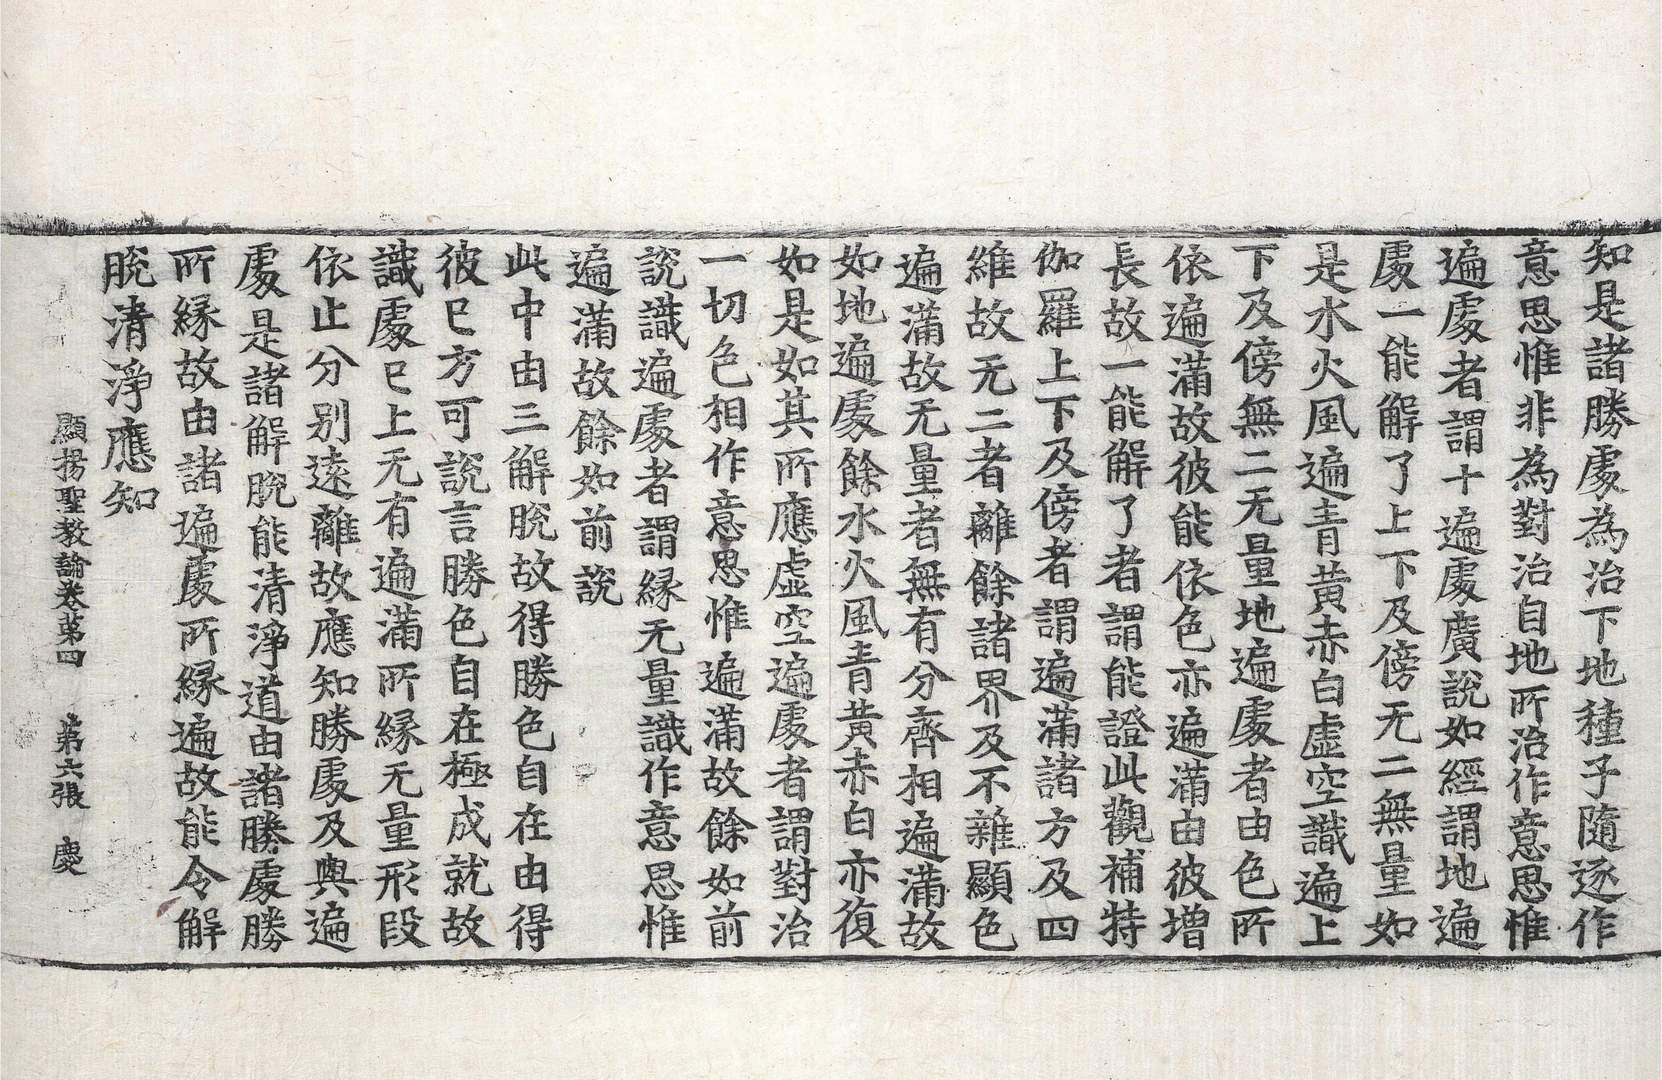 知是諸勝處為治下地種子隨逐作
意思惟非為對治自地所治作意思惟
遍處者謂十遍處廣說如經謂地遍
處一能解了上下及傍无二無量如
是水火風遍青黃赤白虛空識遍上
下及傍無二无量地遍處者由色所
依遍滿故彼能依色亦遍滿由彼增
長故一能解了者謂能證此觀補特
伽羅上下及傍者謂遍滿諸方及四
維故无二者離餘諸界及不雜顯色
遍滿故无量者無有分齊相遍滿故
如地遍處餘水火風青黃赤白亦復
如是如其所應虛空遍處者謂對治
一切色相作意思惟遍滿故餘如前
說識遍處者謂緣无量識作意思惟
遍滿故餘如前說
此中由三解脫故得勝色自在由得
彼已方可說言勝色自在極成就故
識處已上无有遍滿所緣无量形段
依止分別遠離故應知勝處及與遍
處是諸解脫能清淨道由諸勝處勝
所緣故由諸遍處所緣遍故能令解
脫清淨應知
顯揚聖教論卷第四　第六張　慶